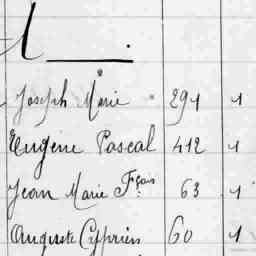 Joseph Marie 294 1
Eugène Pascal 412 1
Jean Marie Fçois 63 1
Auguste Cyprien 60 1